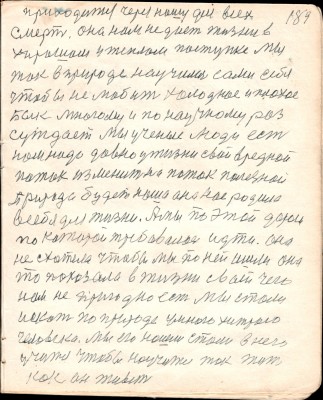 приходитжи через нашу для всех 184
смерть. она нам не дает жизни в
хорошом и теплом поступке мы
так в природе научили сами себя
чтобы не любит холодное и плохое
Бак многому и по научному раз
суждает Мы ученые люди ест
нам надо давно у жизни свой вредной
поток изменит на поток полезной
Природа будет наша она нас родила
всебе для жизни. А мы по этой дороги
по которой требовалос идти. она
не хотела чтобы мы по ней шли она
то показала в жизни свой чего
нам не пригодно ест. Мы стали
искат по природе умного хитрого
человека. Мы его нашли стали в него
учится чтобы научится так жит
как он живет